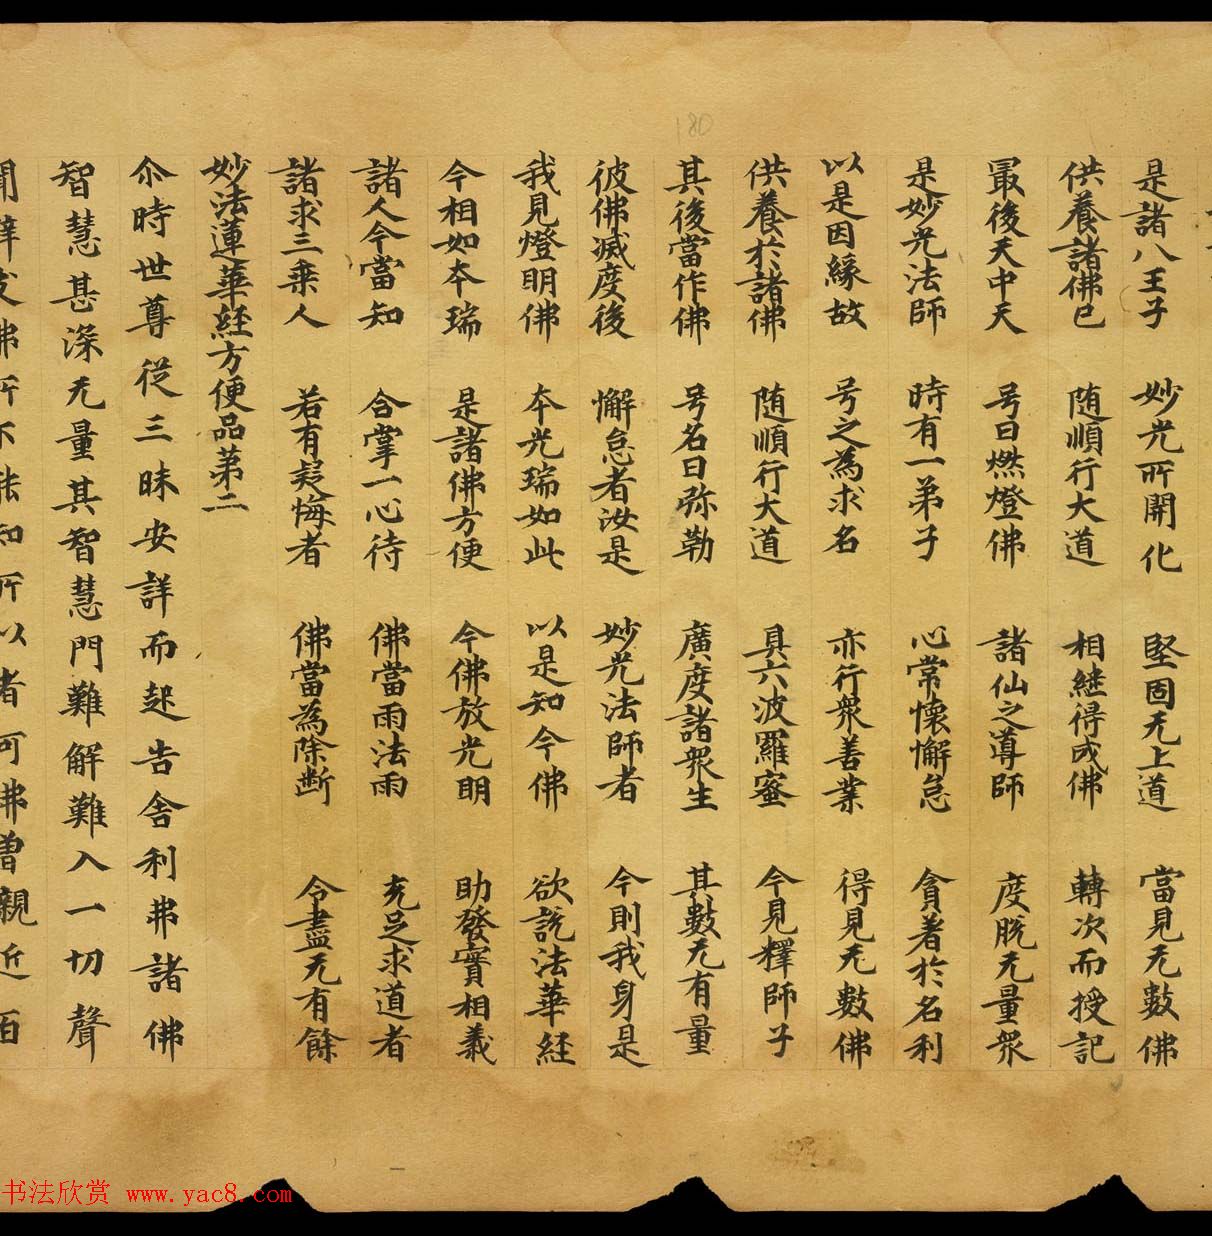 是諸八王子 妙光所開化 堅固无上道 當見无數佛
供養諸佛已 随順行大道 相継得成佛 轉次而授記
冣後天中天 号曰燃燈佛 諸仙之導師 度脱无量衆
是妙光法師 時有一弟子 心常懐懈怠 貪著於名利
以是因緣故 号之為求名 亦行衆善業 得見无數佛
供養於諸佛 随順行大道 具六波羅蜜 今見釋師子
其後當作佛 号名曰弥勒 廣度諸衆生 其數无有量
彼佛滅度後 懈怠者汝是 妙光法師者 今則我身是
我見燈明佛 本光瑞如此 以是知今佛 欲説法華経
今相如本瑞 是諸佛方便 今佛放光明 助發實相義
諸人今當知 合掌一心待 佛當雨法雨 充足求道者
諸求三乗人 若有疑悔者 佛當為除断 令盡无有餘
妙法蓮華経方便品第二
尒時世尊従三昧安詳而起告舍利弗諸佛
智慧甚深无量其智慧門難解難入一切聲
聞辟支佛所不能知所以者何佛曽親近百
180
书法欣赏 www.yac8.com